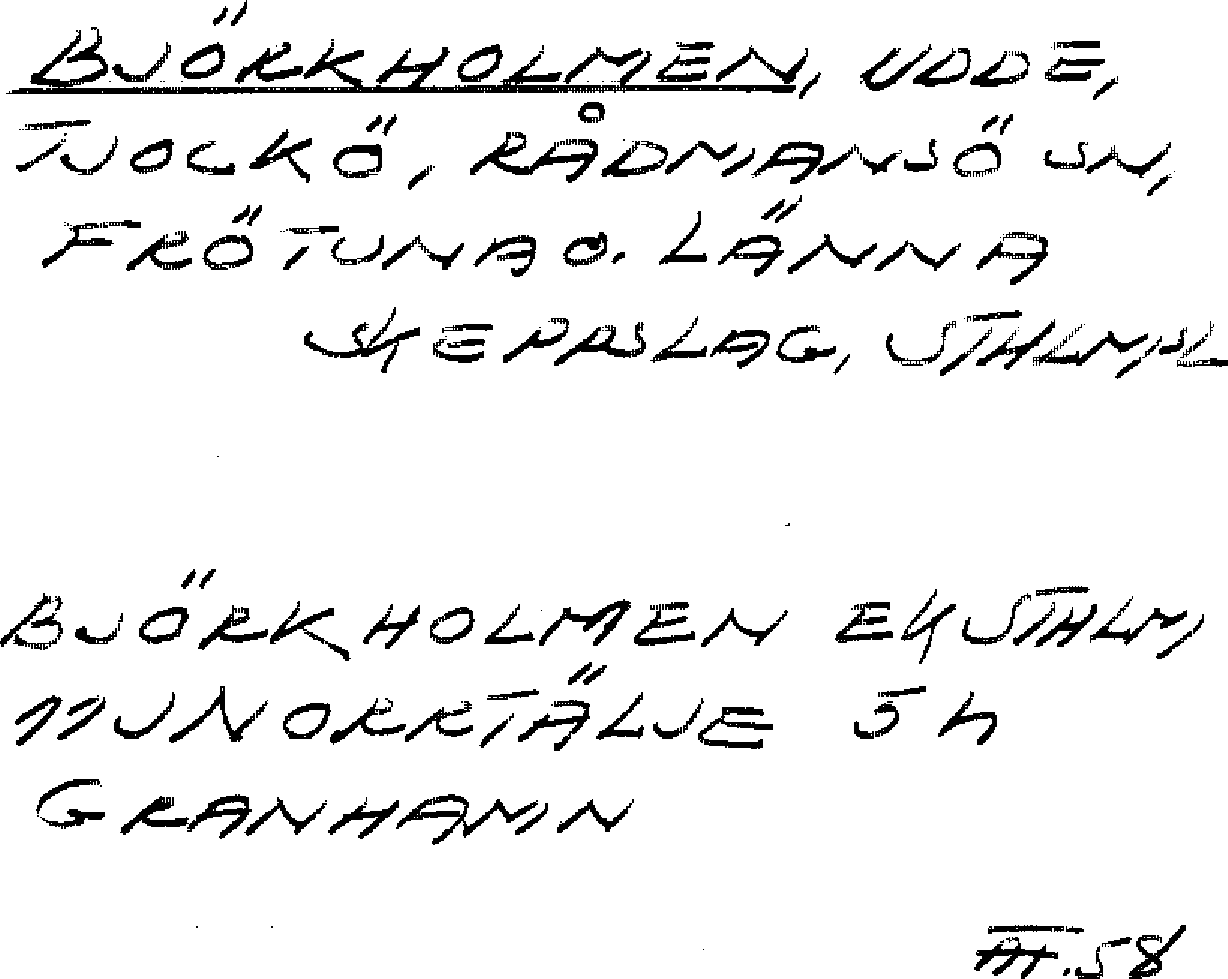 BJÖRKHOLMEN, UDDE,
TJOCKÖ, RÅDMANSÖ SN,
FRÖTUNA O. LÄNNA
SKEPPSLAG, STHLMSL
BJÖRKHOLMEN EK STHLM
11J NORRTÄLJE 5h
GRANHAMN
58